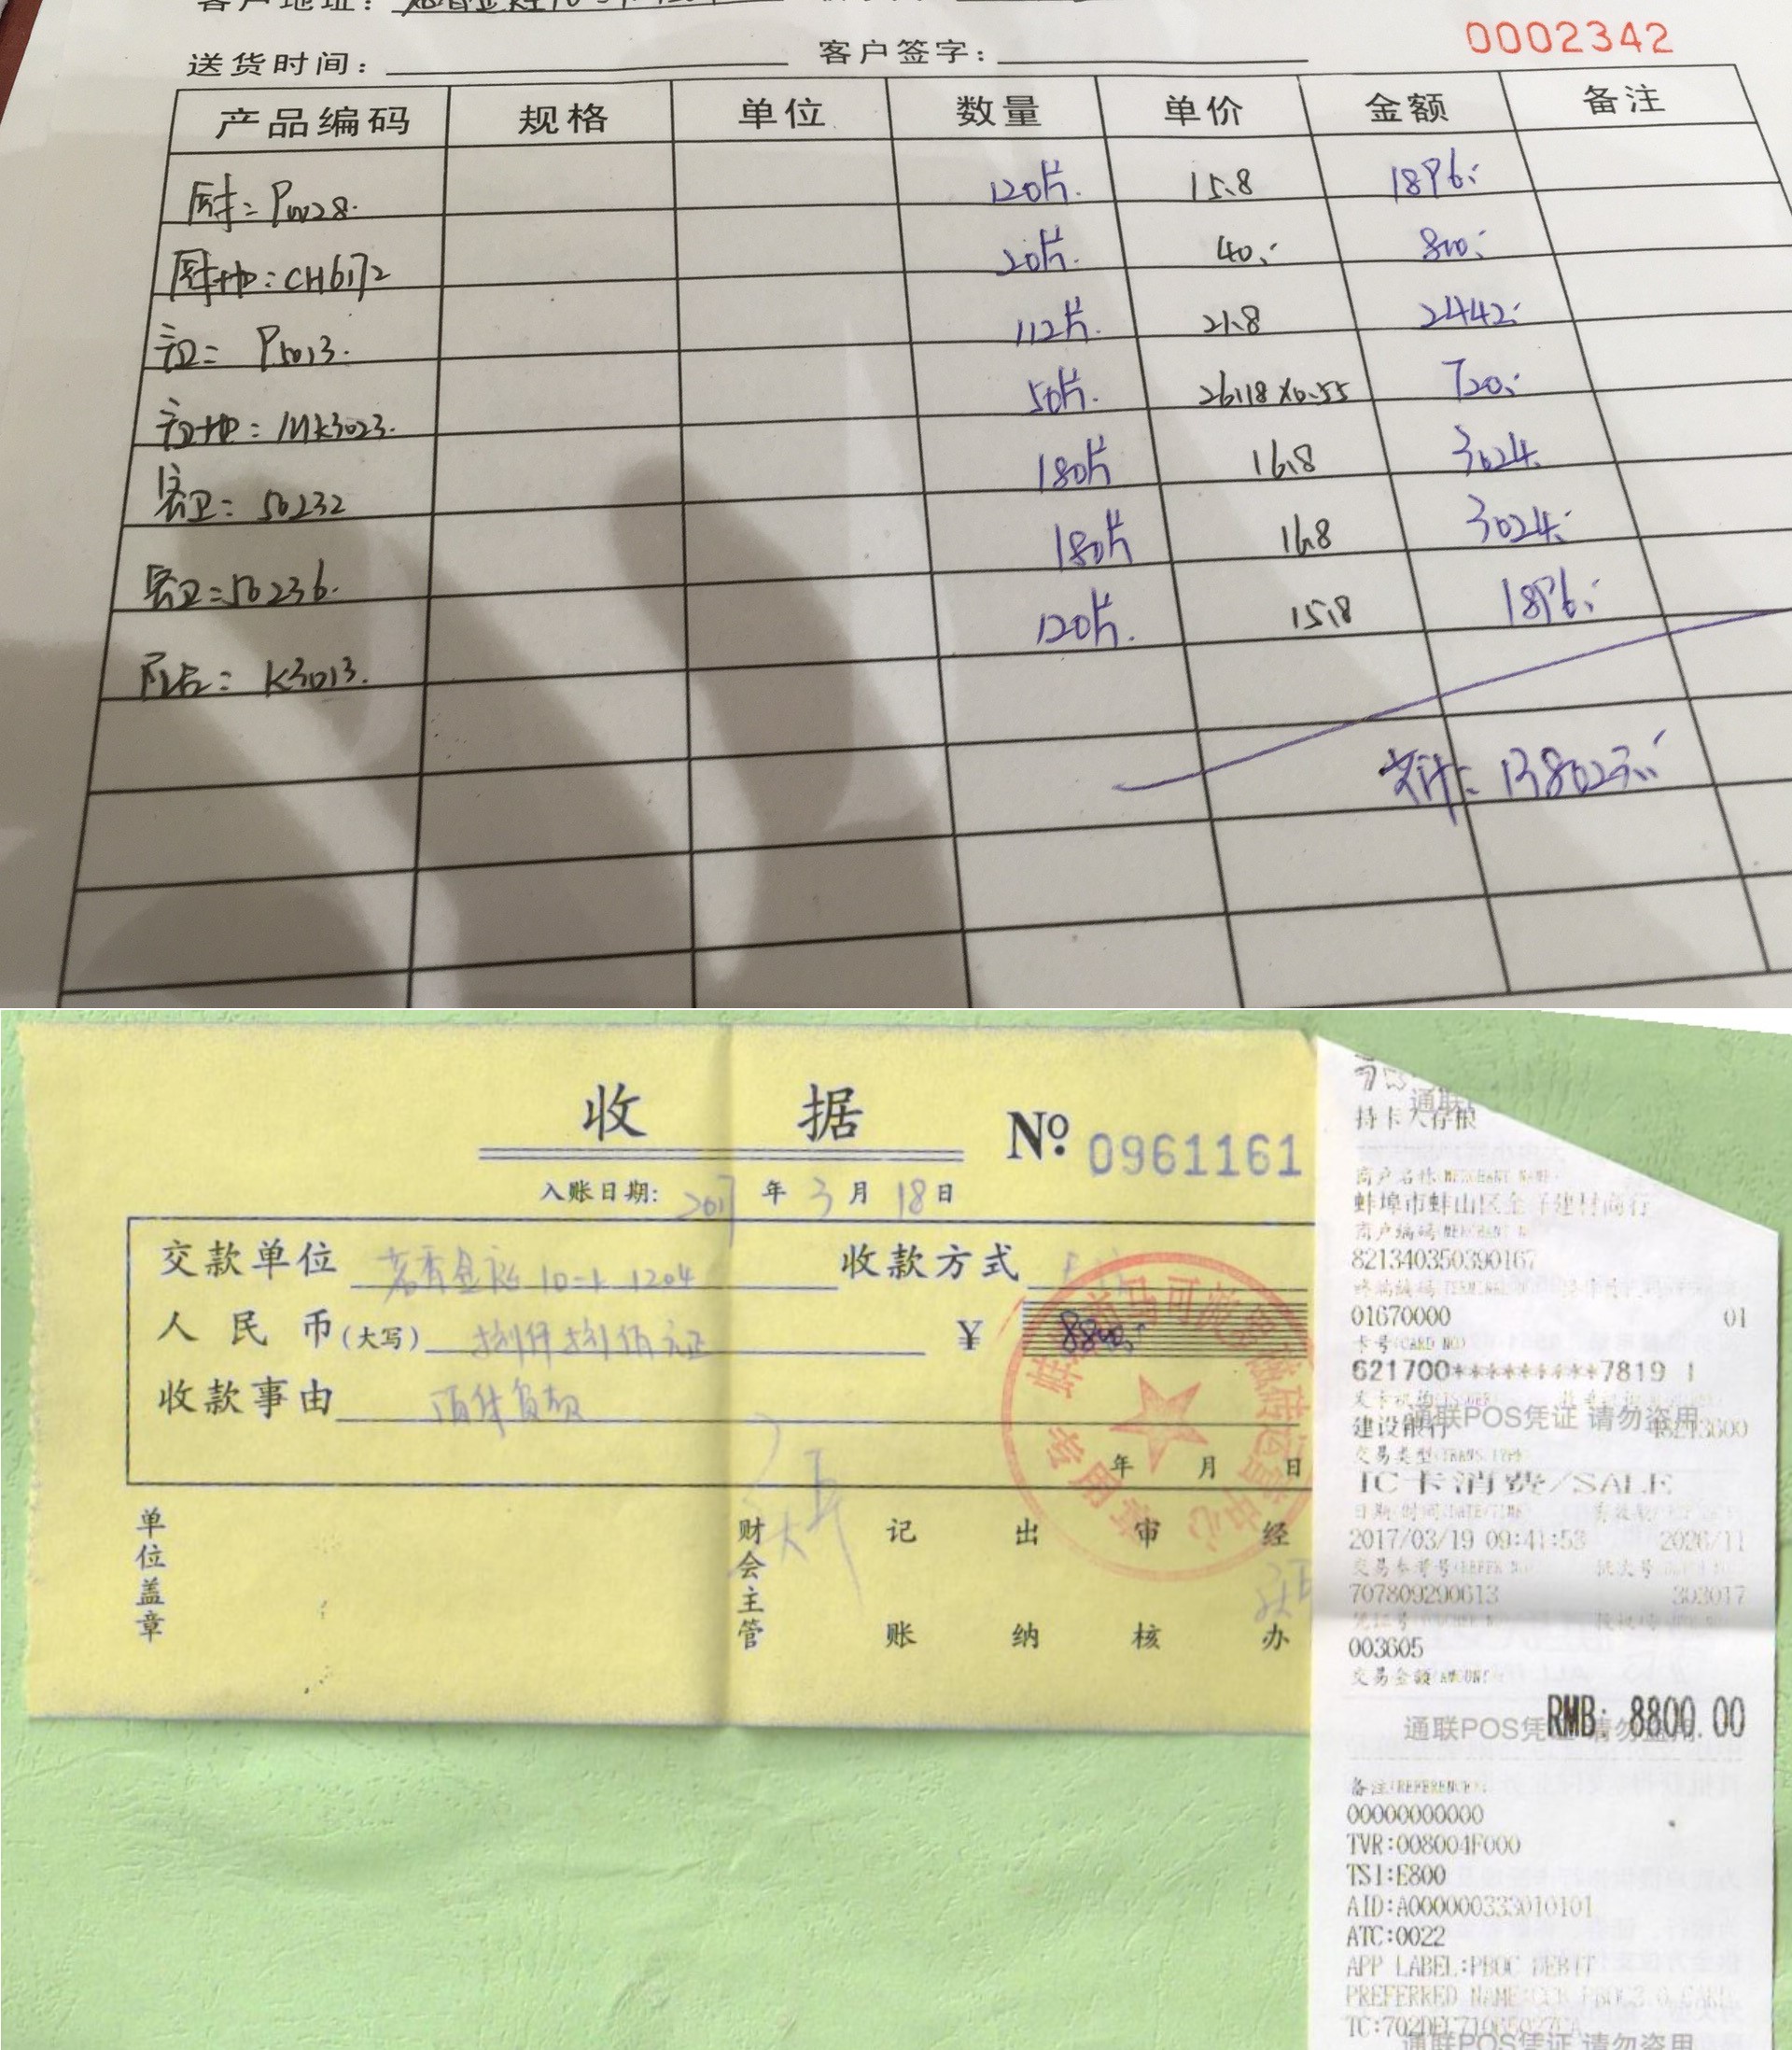 客户地址：
送货时间： 客户签字： 0002342
产品编码 规格 单位 数量 单价 金额 备注
厨卡= P0028. 120片. 15.8 1896.
厨卡地：CH6172 20片. 40. 800.
主卫= P5013. 112片. 21.8 2442.
主卫地：MK3023. 50片. 26.18×0.55 720.
客卫= 50232 180片 16.8 3024.
客卫=50236. 180片 16.8 3024.
阳台= K3013. 120片. 15.8 1896.
共计= 13802元.
收 据 No. 0961161
入账日期: 2017 年 3 月 18 日
交款单位 茗香金苑 10-1 1204 收款方式
人民币(大写) 捌仟捌佰元正 ￥ 8800.
收款事由
年 月 日
单位盖章 财会主管 记账 出纳 审核 经办
专用章
持卡人存根
商户名称(MERCHANT NAME)
蚌埠市蚌山区全子建材商行
商户编码
821340350390167
终端编码(TERMINAL
01670000 01
卡号(CARD NO)
621700*********7819 I
建设银行
通联POS凭证 请勿盗用
交易类型(TRANS TYPE)
IC卡消费/SALE
日期/时间(DATE/TIME) 有效期
2017/03/19 09:41:53 2026/11
交易参考号(REFER NO) 批次号
707809290613 303017
003605
交易金额(AMOUNT)
RMB: 8800.00
通联POS凭证 请勿盗用
备注(REFERENCE):
00000000000
TVR:008004F000
TSI:E800
AID:A000000333010101
ATC:0022
APP LABEL:PBOC DEBIT
PREFERRED NAME:CCB PBOC3.0 CARD
通联POS凭证 请勿盗用